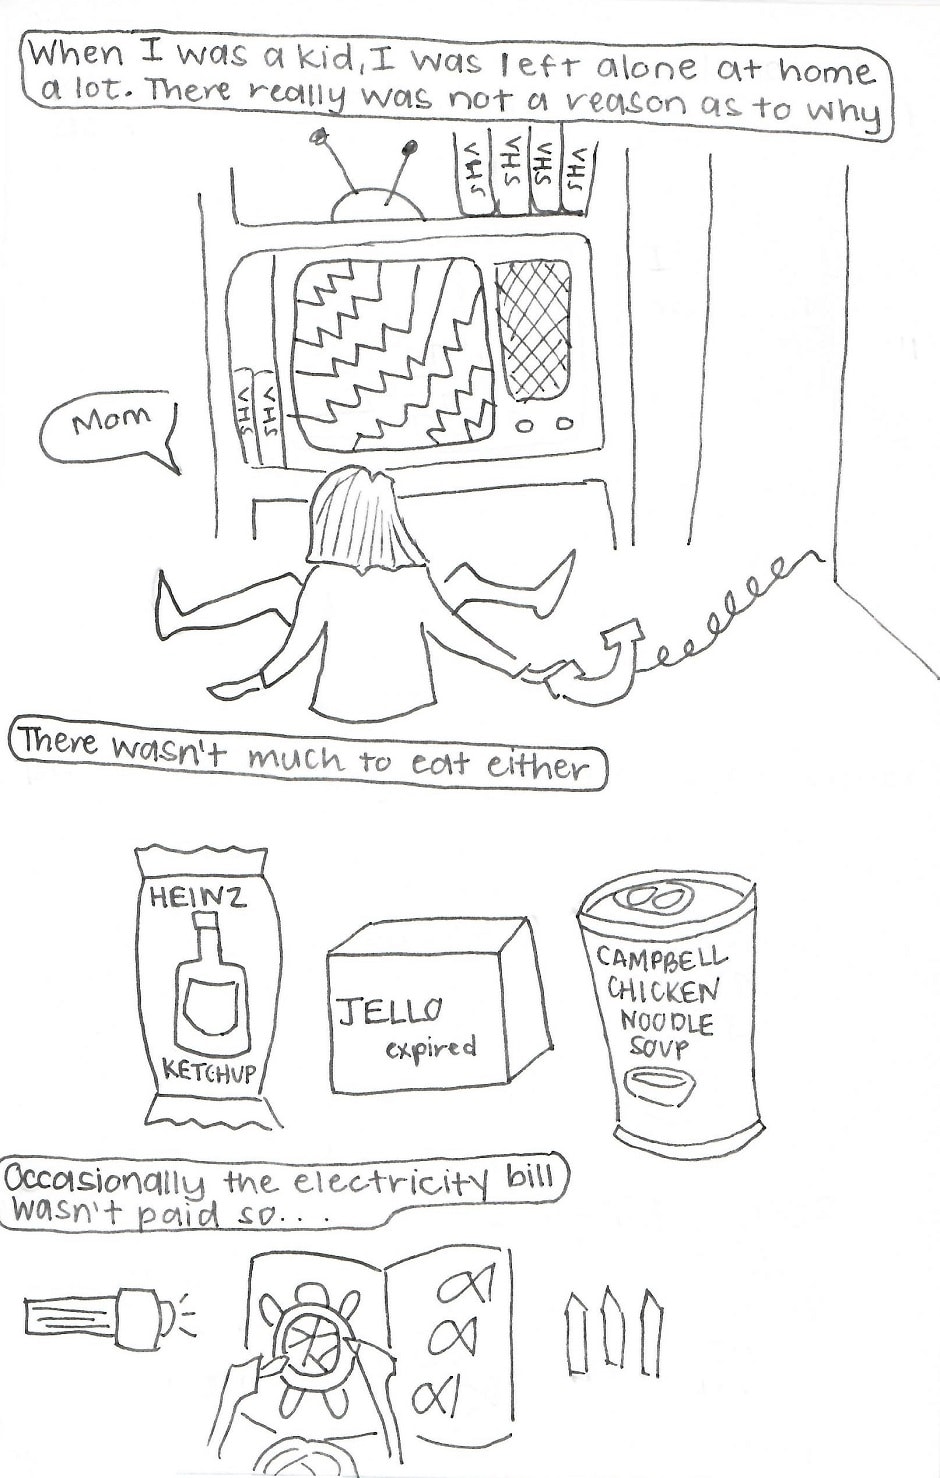 When I was a kid, I was left alone at home
a lot. There really was not a reason as to why
VHS
VHS
VHS
VHS
VHS
VHS
Mom
There wasn't much to eat either
HEINZ
KETCHUP
JELLO
expired
CAMPBELL
CHICKEN
NOODLE
SOUP
Occasionally the electricity bill
wasn't paid so....